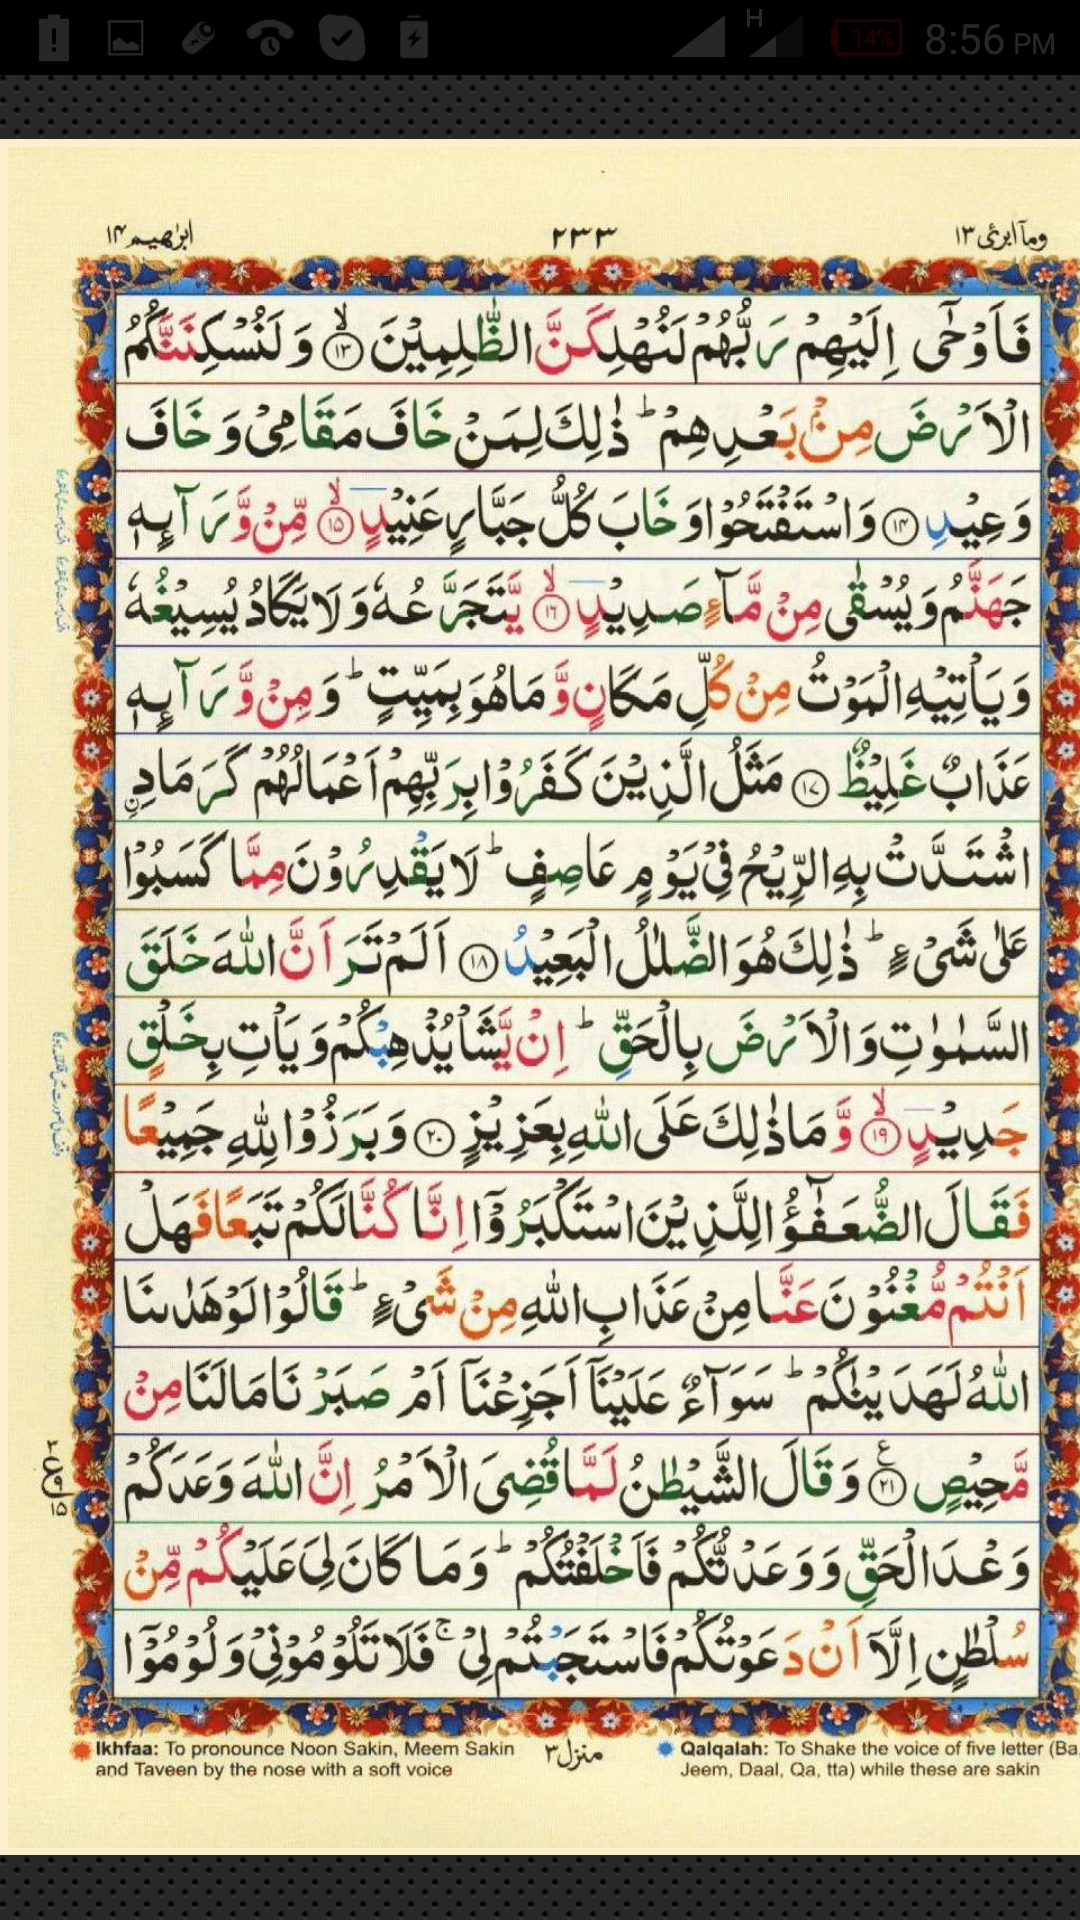 H 14% 8:56 PM
ابرٰهيم ١٤ ٢٣٣ ومآ ابرئ ١٣
فَاَوْحٰٓى اِلَيْهِمْ رَبُّهُمْ لَنُهْلِكَنَّ الظّٰلِمِيْنَ ۙ‏﴿۱۳﴾ وَ لَنُسْكِنَنَّكُمُ
الْاَرْضَ مِنْۢ بَعْدِهِمْ ؕ ذٰلِكَ لِمَنْ خَافَ مَقَامِىْ وَ خَافَ
وَعِيْدِ ﴿۱۴﴾ وَاسْتَفْتَحُوْا وَ خَابَ كُلُّ جَبَّارٍ عَنِيْدٍ ۙ﴿۱۵﴾ مِّنْ وَّرَآئِهٖ
جَهَنَّمُ وَ يُسْقٰى مِنْ مَّآءٍ صَدِيْدٍ ۙ﴿۱۶﴾ يَّتَجَرَّعُهٗ وَ لَا يَكَادُ يُسِيْغُهٗ
وَ يَاْتِيْهِ الْمَوْتُ مِنْ كُلِّ مَكَانٍ وَّ مَا هُوَ بِمَيِّتٍ ؕ وَ مِنْ وَّرَآئِهٖ
عَذَابٌ غَلِيْظٌ ﴿۱۷﴾ مَثَلُ الَّذِيْنَ كَفَرُوْا بِرَبِّهِمْ اَعْمَالُهُمْ كَرَمَادِ ۨ
اشْتَدَّتْ بِهِ الرِّيْحُ فِىْ يَوْمٍ عَاصِفٍ ؕ لَا يَقْدِرُوْنَ مِمَّا كَسَبُوْا
عَلٰى شَىْءٍ ؕ ذٰلِكَ هُوَ الضَّلٰلُ الْبَعِيْدُ ﴿۱۸﴾ اَلَمْ تَرَ اَنَّ اللّٰهَ خَلَقَ
السَّمٰوٰتِ وَ الْاَرْضَ بِالْحَقِّ ؕ اِنْ يَّشَاْ يُذْهِبْكُمْ وَ يَاْتِ بِخَلْقٍ
جَدِيْدٍ ۙ﴿۱۹﴾ وَّ مَا ذٰلِكَ عَلَى اللّٰهِ بِعَزِيْزٍ ﴿۲۰﴾ وَ بَرَزُوْا لِلّٰهِ جَمِيْعًا
فَقَالَ الضُّعَفٰٓؤُا لِلَّذِيْنَ اسْتَكْبَرُوْۤا اِنَّا كُنَّا لَكُمْ تَبَعًا فَهَلْ
اَنْتُمْ مُّغْنُوْنَ عَنَّا مِنْ عَذَابِ اللّٰهِ مِنْ شَىْءٍ ؕ قَالُوْا لَوْ هَدٰٮنَا
اللّٰهُ لَهَدَيْنٰكُمْ ؕ سَوَآءٌ عَلَيْنَاۤ اَجَزِعْنَاۤ اَمْ صَبَرْنَا مَا لَنَا مِنْ
مَّحِيْصٍ ﴿۲۱﴾ ع وَ قَالَ الشَّيْطٰنُ لَمَّا قُضِىَ الْاَمْرُ اِنَّ اللّٰهَ وَعَدَكُمْ
وَعْدَ الْحَقِّ وَ وَعَدْتُّكُمْ فَاَخْلَفْتُكُمْ ؕ وَ مَا كَانَ لِىَ عَلَيْكُمْ مِّنْ
سُلْطٰنٍ اِلَّاۤ اَنْ دَعَوْتُكُمْ فَاسْتَجَبْتُمْ لِىْ ۚ فَلَا تَلُوْمُوْنِىْ وَ لُوْمُوْۤا
Ikhfaa: To pronounce Noon Sakin, Meem Sakin
and Taveen by the nose with a soft voice
منزل ٣
Qalqalah: To Shake the voice of five letter (Ba
Jeem, Daal, Qa, tta) while these are sakin